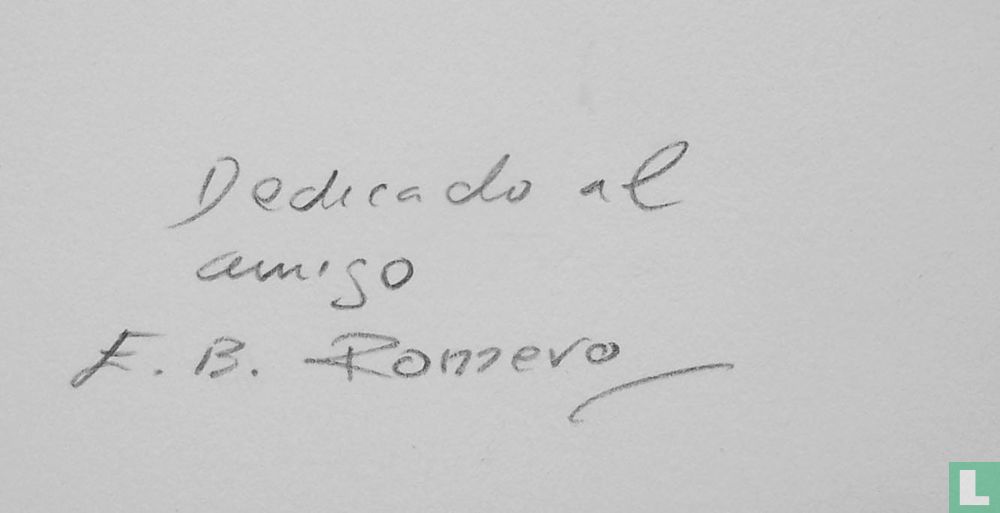 Dedicado al
amigo
E. B. Romero
L